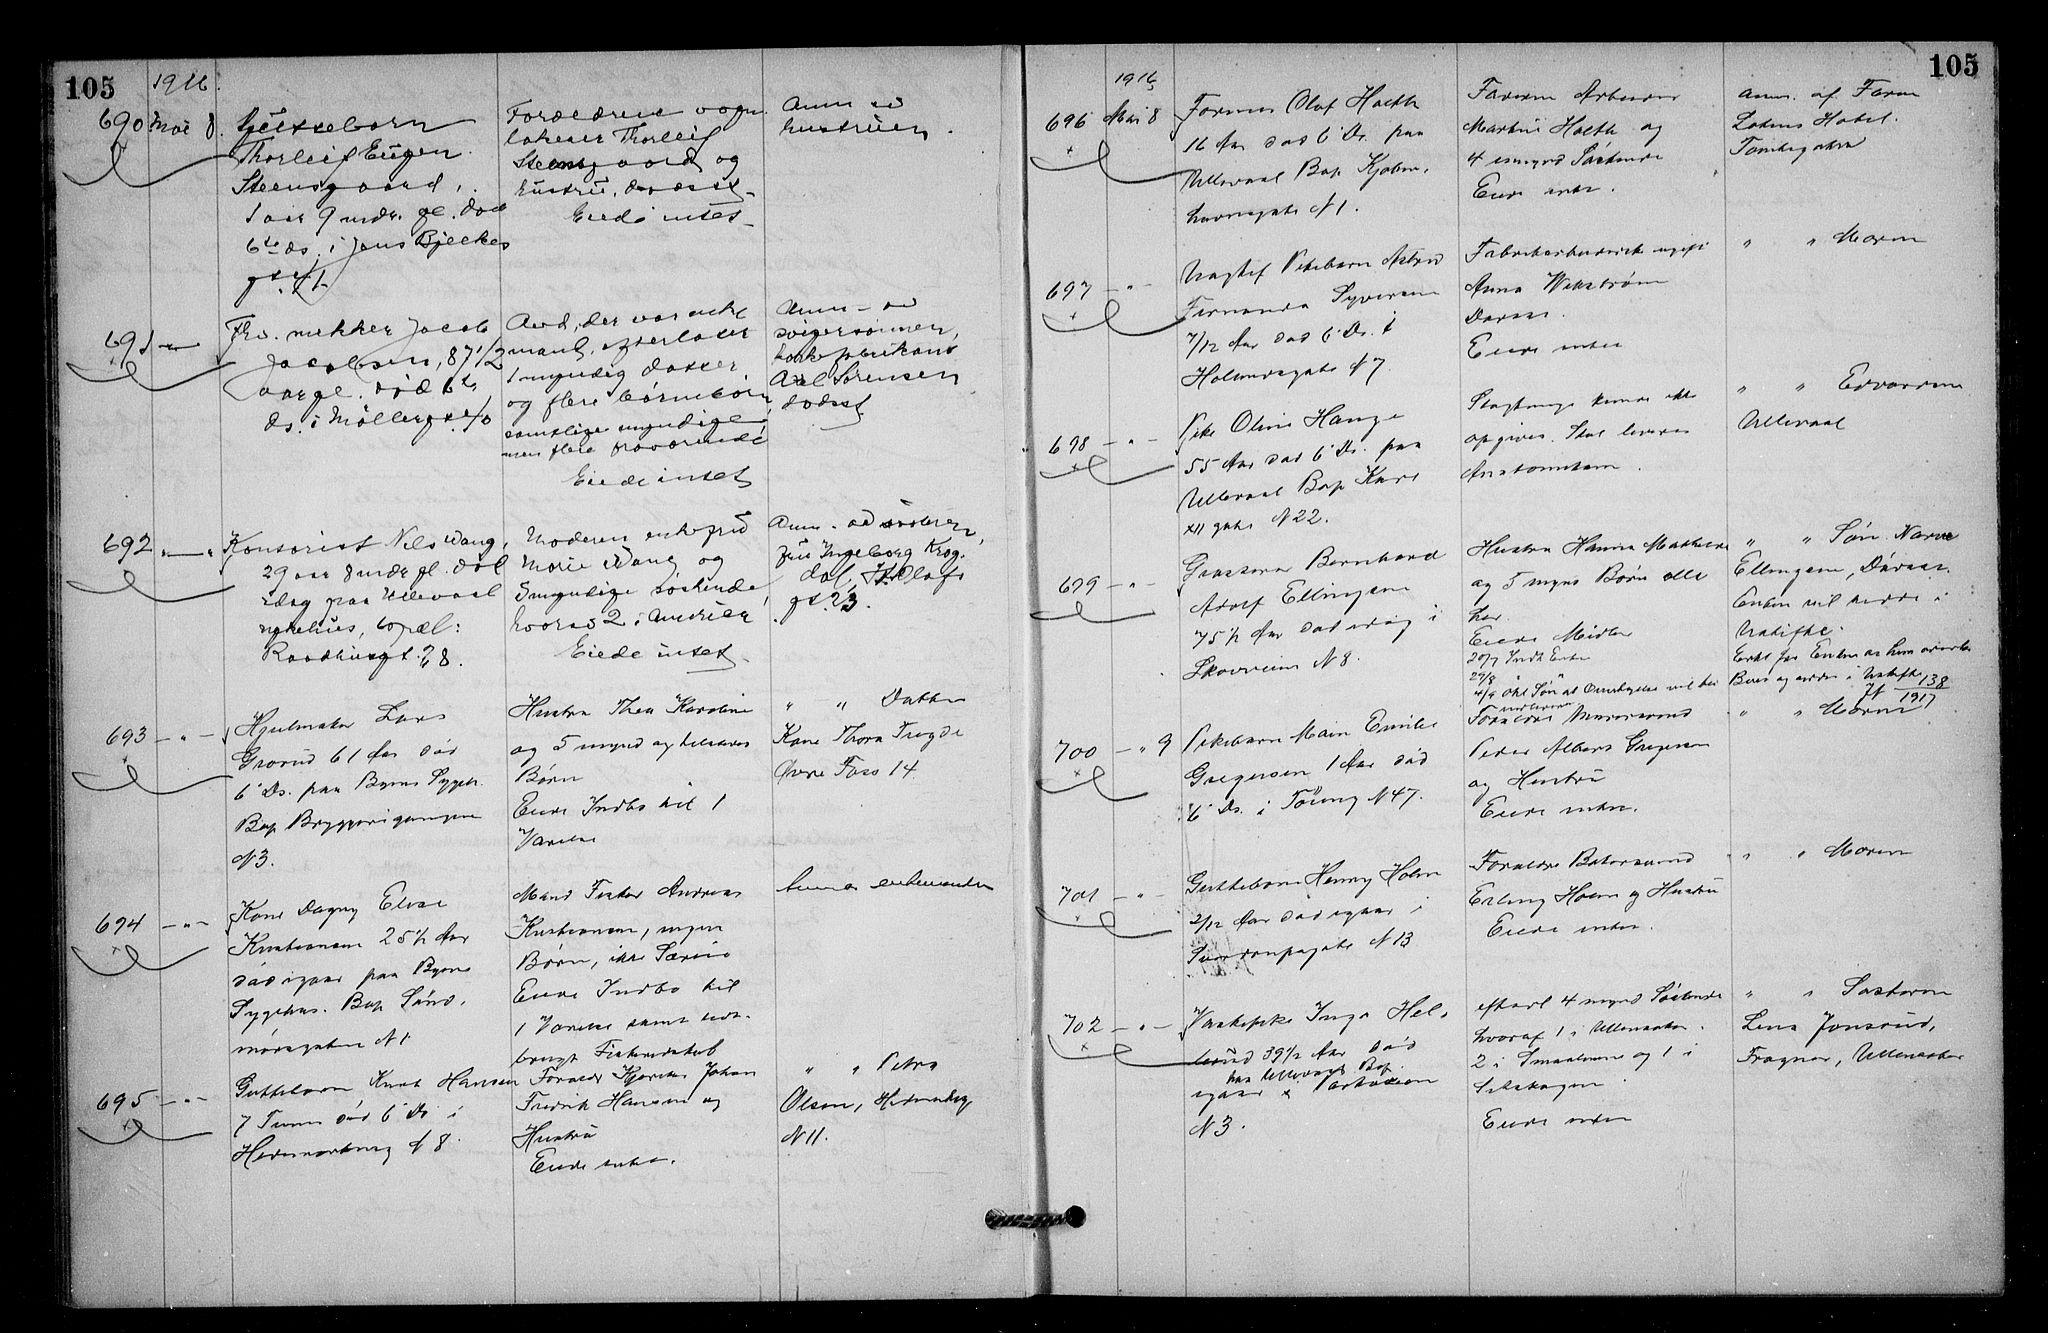 105
1916.
690 Mai 8.
Gutteborn
Thorleif Eugen
Steensgaard,
1 aar 9 mdr. gl. død
6te ds. i Jens Bjelkes
gt. 41
Forældrene vogn-
lakerer Thorleif
Steensgaard og
hustru, dødsst.
Eiede intet
Anm. av
hustruen.
691 — " —
Fhv. snekker Jacob
Jacobsen, 87 1/2
aar gl. død 6te
ds. i Møllergt. 40
Avd., der var enke-
mand, efterlater
1 myndig datter
og flere børnebørn,
samtlige myndige
men flere fraværende
Eiede intet
Anm. av
svigersønnen,
Axel Sørensen
dødsst.
692 — " —
Kontorist Nils Wang,
29 aar 8 mdr. gl. død
idag paa Ullevaal
sykehus, bopæl:
Raadhusgt. 28.
Moderen enkefru
Marie Wang og
5 myndige søskende,
hvorav 2 i Amerika
Eiede intet
Anm. av søsteren,
fru Ingeborg Krog-
dal, St. Olafs
gt. 23.
693 — " —
Hjulmaker Lars
Grorud 61 Aar død
6' Ds. paa Byens Sygeh.
Bop Bryggerigangen
N 3.
Hustru Thea Karoline
og 5 mynd og tilstedev
Børn
Eiede Indbo til 1
Værelse
" " Datter
Kone Thora Trygde
Øvre Foss 14.
694 — " —
Kone Dagny Elise
Kristiansen 25 1/2 Aar
død igaar paa Byens
Sygehus. Bop Sønd.
N 1
Mand Fisker Andreas
Kristiansen, ingen
Børn, ikke Særeie
Eiede Indbo til
1 Værelse samt
brugt Fiskeredskab
Anm. enkemanden
695 — " —
Guttebarn Knut Hansen
7 Timer død 6' Ds i
Hedemarksveg N 8.
Forældr Kjørekar Johan
Fredrik Hansen og
Hustru
Eiede intet.
" " Petra
Olsen, Hedemarksg
N 11.
105
1916
696 Mai 8
Olaf Holth
16 Aar død 6' Ds. paa
Ullevaal Bop Kjøben-
havnsgate N 1.
Faren Arbeider
Martin Holth og
4 Søskende
Eiede intet.
Anm. af Faren
Hotel.
Tomtegaten
697 — " —
Uægtef Pikebarn Astrid
Fernanda Syversen
7/12 Aar død 6' Ds. i
Holmensgate N 7.
Fabrikarbeiderske ugift
Anna Wikstrøm
Dødsst.
Eiede intet
" " Moren
698 — " —
Pike Oline Hauge
55 Aar død 6' Ds. paa
Ullevaal Bop Karl
XII gate N 22.
Slægtninge kunde ikke
opgives. Skal leveres
Anatomikam.
" " Edvardsen
Ullevaal
699 — " —
Grosserer Bernhard
Adolf Ellingsen
75 1/2 Aar død idag i
Skovveien N 8.
Hustru Hanna Mathilde
og 5 mynd Børn alle
her.
Eiede Midler
" " Søn Narve
Ellingsen, Dødsst.
Enken vil sidde i
Uskifte.
138
1917
700 — " 9
Pikebarn Emilie
Gregersen 1 Aar død
6' Ds. i Tøieng N 47.
Forældre Murersvend
Peder Albert Gregersen
og Hustru
Eiede intet.
" " Moren
701 — " —
Guttebarn Henry Holm
2/12 Aar død igaar i
N 13
Forældre Bakersvend
Erling Holm og Hustru
Eiede intet.
" " Moren
702 — " —
Vaskepike Inga Hel-
39 1/2 Aar død
paa Ullevaal Bop.
igaar
N 3.
efterl 4 mynd Søskende
hvoraf 1 i Ullensaker
2 i Smaalenene og 1 i
Eiede intet
" " Søsteren
Lena Jonsrud,
Frogner, Ullensaker